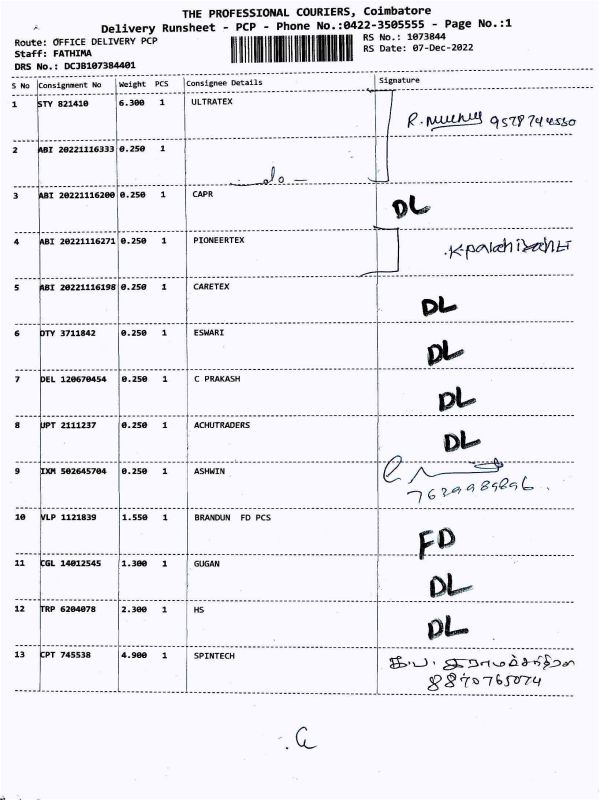 THE PROFESSIONAL COURIERS, Coimbatore
Delivery Runsheet - PCP - Phone No.:0422-3505555 - Page No.:1
Route: OFFICE DELIVERY PCP
Staff: FATHIMA
DRS No.: DCJB107384401
RS No.: 1073844
RS Date: 07-Dec-2022
S No Consignment No Weight PCS Consignee Details Signature
1 STY 821410 6.300 1 ULTRATEX
R. 9578744550
2 ABI 20221116333 0.250 1
do
3 ABI 20221116200 0.250 1 CAPR DL
4 ABI 20221116271 0.250 1 PIONEERTEX
5 ABI 20221116198 0.250 1 CARETEX DL
6 DTY 3711842 0.250 1 ESWARI DL
7 DEL 120670454 0.250 1 C PRAKASH DL
8 UPT 2111237 0.250 1 ACHUTRADERS DL
9 IXM 502645704 0.250 1 ASHWIN
10 VLP 1121839 1.550 1 BRANDUN FD PCS FD
11 CGL 14012545 1.300 1 GUGAN DL
12 TRP 6204078 2.300 1 HS DL
13 CPT 745538 4.900 1 SPINTECH
8870765074